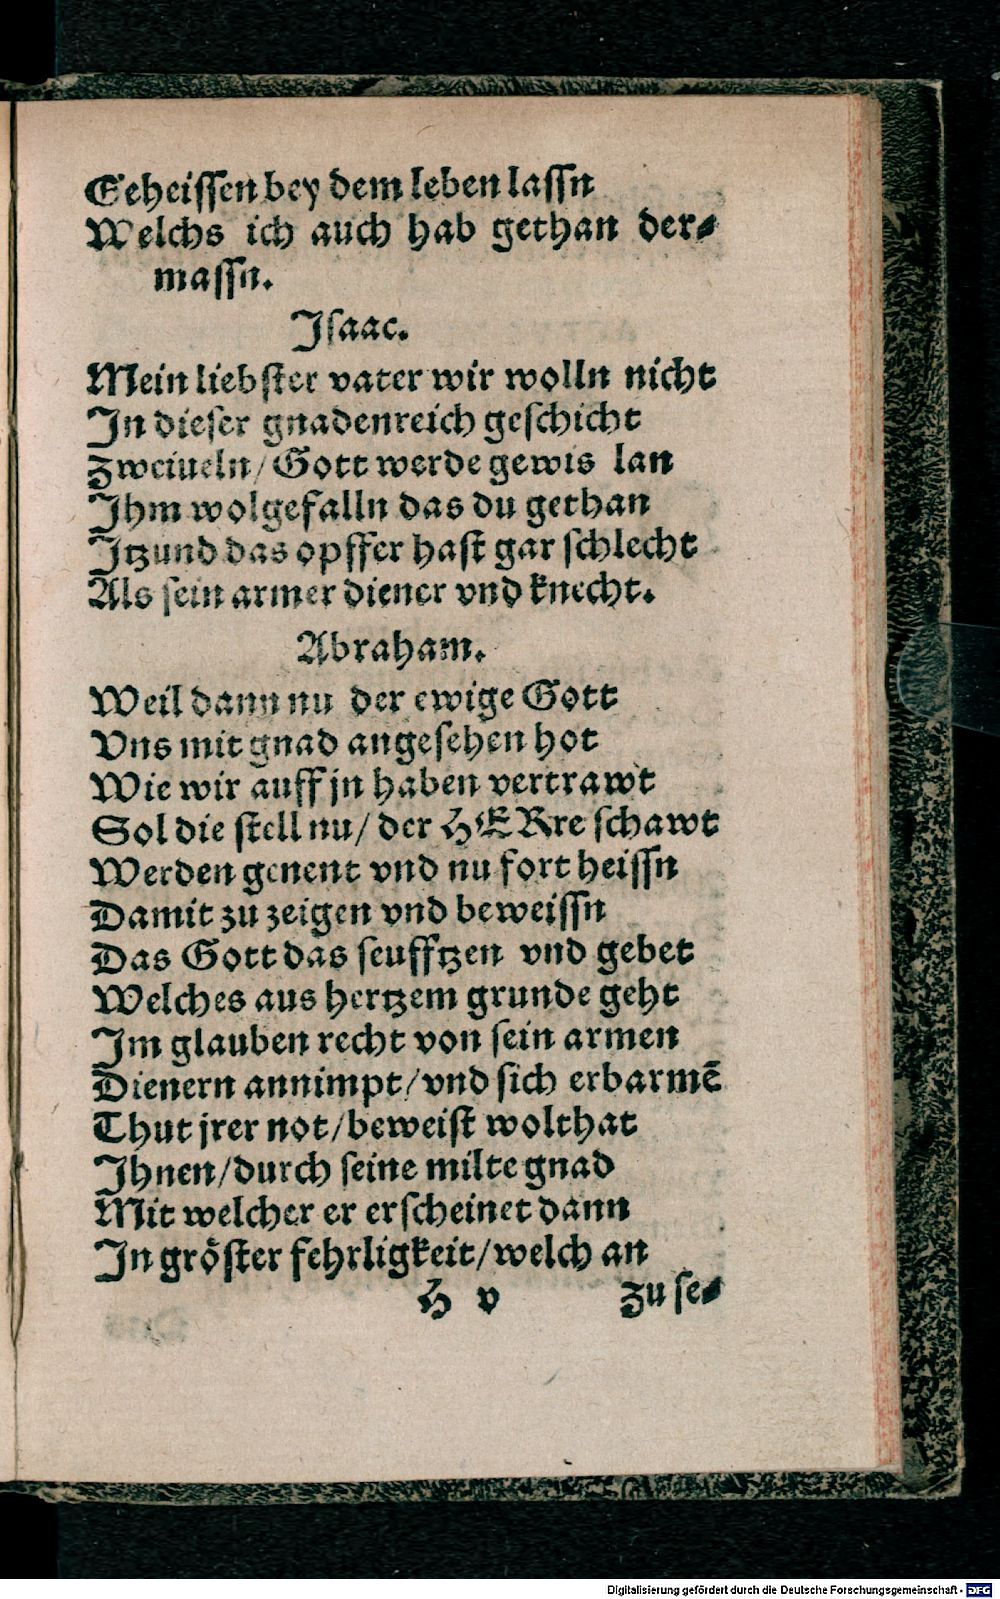 Geheissen bey dem leben lassn
Welchs ich auch hab gethan der⸗
massn.
Isaac.
Mein liebster vater wir wolln nicht
In dieser gnadenreich geschicht
Zweiueln/ Gott werde gewis lan
Ihm wolgefalln das du gethan
Itzund das opffer hast gar schlecht
Als sein armer diener vnd knecht.
Abraham.
Weil dann nu der ewige Gott
Vns mit gnad angesehen hot
Wie wir auff jn haben vertrawt
Sol die stell nu/ der HERre schawt
Werden genent vnd nu fort heissn
Damit zu zeigen vnd beweissn
Das Gott das seufftzen vnd gebet
Welches aus hertzem grunde geht
Im glauben recht von sein armen
Dienern annimpt/ vnd sich erbarmē
Thut jrer not/ beweist wolthat
Ihnen/ durch seine milte gnad
Mit welcher er erscheinet dann
In gröster fehrligkeit/ welch an
H v zu se⸗
Digitalisierung gefördert durch die Deutsche Forschungsgemeinschaft - DFG